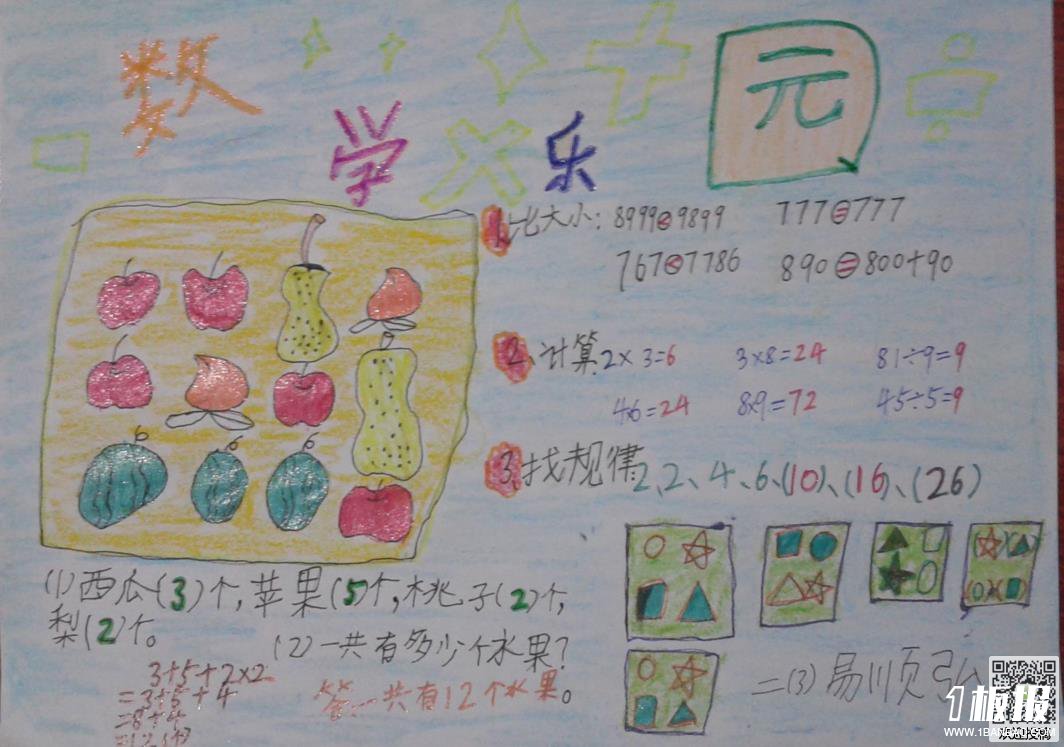 数学乐
元
1.比大小：8999<9899 777=777
767<7786 890=800+90
2.计算 2×3=6 3×8=24 81÷9=9
4×6=24 8×9=72 45÷5=9
3.找规律 2、2、4、6、(10)、(16)、(26)
(1)西瓜(3)个，苹果(5)个，桃子(2)个，
梨(2)个。
(2)一共有多少个水果？
3+5+2×2
=3+5+4
=8+4
答：一共有12个水果。
二(3)易顺弘
1板报
WWW.1BANBAO.COM
欢迎投稿